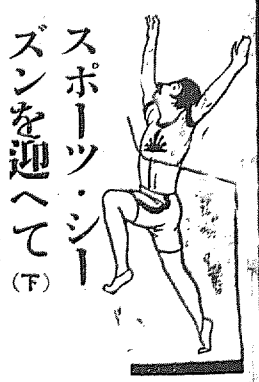 スポーツ・シー
ズンを迎へて
(下)